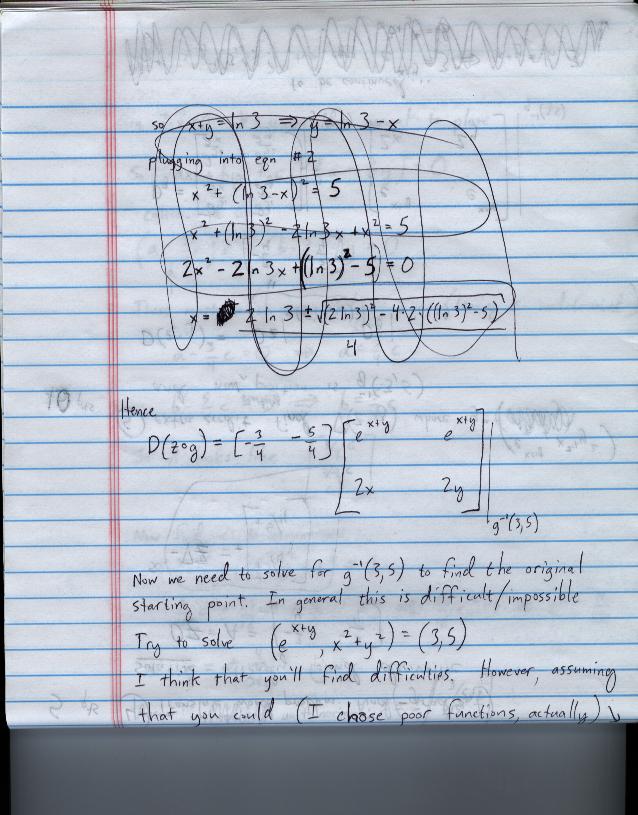 so x+y = ln 3 ⇒ y = ln 3 - x
plugging into eqn #2
x² + (ln 3 - x)² = 5
x² + (ln 3)² - 2 ln 3 x + x² = 5
2x² - 2 ln 3 x + ((ln 3)² - 5) = 0
x = 2 ln 3 ± √((2 ln 3)² - 4·2·((ln 3)² - 5))
4
Hence
D(z∘g) = [-3/4 -5/4] [e^(x+y) e^(x+y)
2x 2y] |g⁻¹(3,5)
Now we need to solve for g⁻¹(3,5) to find the original
starting point. In general this is difficult/impossible
Try to solve (e^(x+y), x²+y²) = (3,5)
I think that you'll find difficulties. However, assuming
that you could (I chose poor functions, actually)